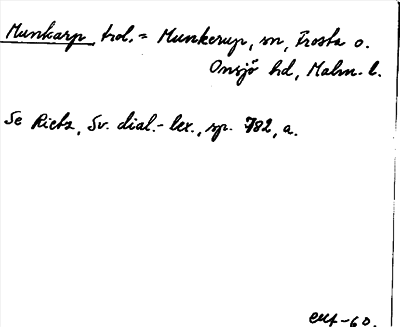 Munkarp, trol. = Munkerup, sn, Frosta o.
Onsjö hd, Malm. l.
Se Rietz, Sv. dial.-lex., sp. 782, a.